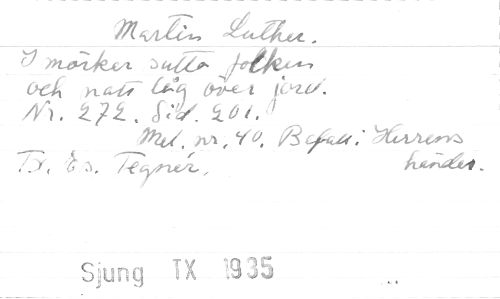 Martin Luther.
I mörker sutto folken
och natt låg över jord.
Nr. 272. Sid. 201.
Mel. nr. 40. Befall i Herrens
händer.
Tx. Es. Tegnér.
Sjung TX 1935